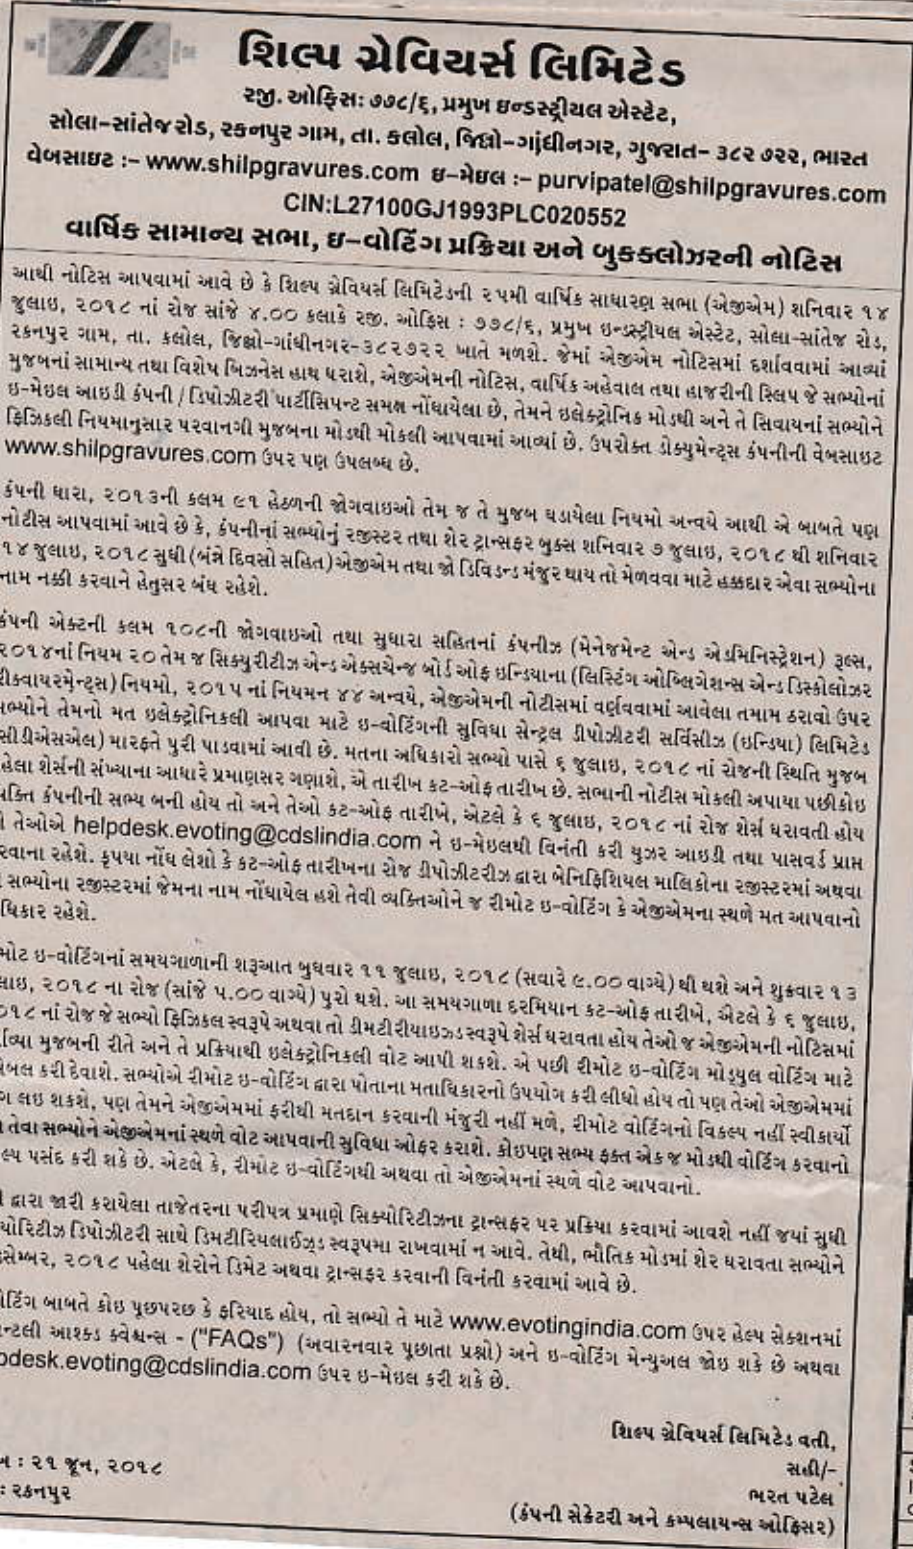 શિલ્પ ગ્રેવિયર્સ લિમિટેડ
રજી. ઓફિસ: ૭૭૮/૬, પ્રમુખ ઇન્ડસ્ટ્રીયલ એસ્ટેટ,
સોલા-સાંતેજ રોડ, રકનપુર ગામ, તા. કલોલ, જિલ્લો-ગાંધીનગર, ગુજરાત- ૩૮૨ ૭૨૨, ભારત
વેબસાઇટ :- www.shilpgravures.com ઇ-મેઇલ :- purvipatel@shilpgravures.com
CIN:L27100GJ1993PLC020552
વાર્ષિક સામાન્ય સભા, ઇ-વોટિંગ પ્રક્રિયા અને બુકક્લોઝરની નોટિસ
આથી નોટિસ આપવામાં આવે છે કે શિલ્પ ગ્રેવિયર્સ લિમિટેડની ૨૫મી વાર્ષિક સાધારણ સભા (એજીએમ) શનિવાર ૧૪
જુલાઇ, ૨૦૧૮ નાં રોજ સાંજે ૪.૦૦ કલાકે રજી. ઓફિસ : ૭૭૮/૬, પ્રમુખ ઇન્ડસ્ટ્રીયલ એસ્ટેટ, સોલા-સાંતેજ રોડ,
રકનપુર ગામ, તા. કલોલ, જિલ્લો-ગાંધીનગર-૩૮૨૭૨૨ ખાતે મળશે. જેમાં એજીએમ નોટિસમાં દર્શાવવામાં આવ્યાં
મુજબનાં સામાન્ય તથા વિશેષ બિઝનેસ હાથ ધરાશે, એજીએમની નોટિસ, વાર્ષિક અહેવાલ તથા હાજરીની સ્લિપ જે સભ્યોનાં
ઇ-મેઇલ આઇડી કંપની / ડિપોઝીટરી પાર્ટીસિપન્ટ સમક્ષ નોંધાયેલા છે, તેમને ઇલેક્ટ્રોનિક મોડથી અને તે સિવાયનાં સભ્યોને
ફિઝિકલી નિયમાનુસાર પરવાનગી મુજબના મોડથી મોકલી આપવામાં આવ્યાં છે. ઉપરોક્ત ડોક્યુમેન્ટ્સ કંપનીની વેબસાઇટ
www.shilpgravures.com ઉપર પણ ઉપલબ્ધ છે.
કંપની ધારા, ૨૦૧૩ની કલમ ૯૧ હેઠળની જોગવાઇઓ તેમ જ તે મુજબ ઘડાયેલા નિયમો અન્વયે આથી એ બાબતે પણ
નોટીસ આપવામાં આવે છે કે, કંપનીનાં સભ્યોનું રજીસ્ટર તથા શેર ટ્રાન્સફર બુક્સ શનિવાર ૭ જુલાઇ, ૨૦૧૮ થી શનિવાર
૧૪ જુલાઇ, ૨૦૧૮ સુધી (બંન્ને દિવસો સહિત) એજીએમ તથા જો ડિવિડન્ડ મંજુર થાય તો મેળવવા માટે હક્કદાર એવા સભ્યોના
નામ નક્કી કરવાને હેતુસર બંધ રહેશે.
કંપની એક્ટની કલમ ૧૦૮ની જોગવાઇઓ તથા સુધારા સહિતનાં કંપનીઝ (મેનેજમેન્ટ એન્ડ એડમિનિસ્ટ્રેશન) રૂલ્સ,
૨૦૧૪નાં નિયમ ૨૦ તેમ જ સિક્યુરીટીઝ એન્ડ એક્સચેન્જ બોર્ડ ઓફ ઇન્ડિયાના (લિસ્ટિંગ ઓબ્લિગેશન્સ એન્ડ ડિસ્ક્લોઝર
રીક્વાયરમેન્ટ્સ) નિયમો, ૨૦૧૫ નાં નિયમન ૪૪ અન્વયે, એજીએમની નોટીસમાં વર્ણવવામાં આવેલા તમામ ઠરાવો ઉપર
સભ્યોને તેમનો મત ઇલેક્ટ્રોનિકલી આપવા માટે ઇ-વોટિંગની સુવિધા સેન્ટ્રલ ડીપોઝીટરી સર્વિસીઝ (ઇન્ડિયા) લિમિટેડ
સીડીએસએલ) મારફતે પુરી પાડવામાં આવી છે. મતના અધિકારો સભ્યો પાસે ૬ જુલાઇ, ૨૦૧૮ નાં રોજની સ્થિતિ મુજબ
હેલા શેર્સની સંખ્યાના આધારે પ્રમાણસર ગણાશે, એ તારીખ કટ-ઓફ તારીખ છે. સભાની નોટીસ મોકલી અપાયા પછી કોઇ
ક્તિ કંપનીની સભ્ય બની હોય તો અને તેઓ કટ-ઓફ તારીખે, એટલે કે ૬ જુલાઇ, ૨૦૧૮ નાં રોજ શેર્સ ધરાવતી હોય
તેઓએ helpdesk.evoting@cdslindia.com ને ઇ-મેઇલથી વિનંતી કરી યુઝર આઇડી તથા પાસવર્ડ પ્રાપ્ત
રવાના રહેશે. કૃપયા નોંધ લેશો કે કટ-ઓફ તારીખના રોજ ડીપોઝીટરીઝ દ્વારા બેનિફિશિયલ માલિકોના રજીસ્ટરમાં અથવા
સભ્યોના રજીસ્ટરમાં જેમના નામ નોંધાયેલ હશે તેવી વ્યક્તિઓને જ રીમોટ ઇ-વોટિંગ કે એજીએમના સ્થળે મત આપવાનો
ધિકાર રહેશે.
મોટ ઇ-વોટિંગનાં સમયગાળાની શરૂઆત બુધવાર ૧૧ જુલાઇ, ૨૦૧૮ (સવારે ૯.૦૦ વાગ્યે) થી થશે અને શુક્રવાર ૧૩
લાઇ, ૨૦૧૮ ના રોજ (સાંજે ૫.૦૦ વાગ્યે) પુરો થશે. આ સમયગાળા દરમિયાન કટ-ઓફ તારીખે, એટલે કે ૬ જુલાઇ,
૦૧૮ નાં રોજ જે સભ્યો ફિઝિકલ સ્વરૂપે અથવા તો ડીમટીરીયાઇઝ્ડ સ્વરૂપે શેર્સ ધરાવતા હોય તેઓ જ એજીએમની નોટિસમાં
ર્ણવ્યા મુજબની રીતે અને તે પ્રક્રિયાથી ઇલેક્ટ્રોનિકલી વોટ આપી શકશે. એ પછી રીમોટ ઇ-વોટિંગ મોડ્યુલ વોટિંગ માટે
એબલ કરી દેવાશે. સભ્યોએ રીમોટ ઇ-વોટિંગ દ્વારા પોતાના મતાધિકારનો ઉપયોગ કરી લીધો હોય તો પણ તેઓ એજીએમમાં
ગ લઇ શકશે, પણ તેમને એજીએમમાં ફરીથી મતદાન કરવાની મંજુરી નહીં મળે, રીમોટ વોટિંગનો વિકલ્પ નહીં સ્વીકાર્યો
તેવા સભ્યોને એજીએમનાં સ્થળે વોટ આપવાની સુવિધા ઓફર કરાશે. કોઇપણ સભ્ય ફક્ત એક જ મોડથી વોટિંગ કરવાનો
લ્પ પસંદ કરી શકે છે. એટલે કે, રીમોટ ઇ-વોટિંગથી અથવા તો એજીએમનાં સ્થળે વોટ આપવાનો.
દ્વારા જારી કરાયેલા તાજેતરના પરીપત્ર પ્રમાણે સિક્યોરિટીઝના ટ્રાન્સફર પર પ્રક્રિયા કરવામાં આવશે નહીં જયાં સુધી
યોરિટીઝ ડિપોઝીટરી સાથે ડિમટીરિયલાઈઝ્ડ સ્વરૂપમા રાખવામાં ન આવે. તેથી, ભૌતિક મોડમાં શેર ધરાવતા સભ્યોને
સેમ્બર, ૨૦૧૮ પહેલા શેરોને ડિમેટ અથવા ટ્રાન્સફર કરવાની વિનંતી કરવામાં આવે છે.
ોટિંગ બાબતે કોઇ પૂછપરછ કે ફરિયાદ હોય, તો સભ્યો તે માટે www.evotingindia.com ઉપર હેલ્પ સેક્શનમાં
ન્ટલી આસ્ક્ડ ક્વેશ્ચન્સ - ("FAQs") (અવારનવાર પૂછાતા પ્રશ્નો) અને ઇ-વોટિંગ મેન્યુઅલ જોઇ શકે છે અથવા
pdesk.evoting@cdslindia.com ઉપર ઇ-મેઇલ કરી શકે છે.
શિલ્પ ગ્રેવિયર્સ લિમિટેડ વતી,
ખ : ૨૧ જૂન, ૨૦૧૮
સહી/-
: રકનપુર
ભરત પટેલ
(કંપની સેક્રેટરી અને કમ્પલાયન્સ ઓફિસર)